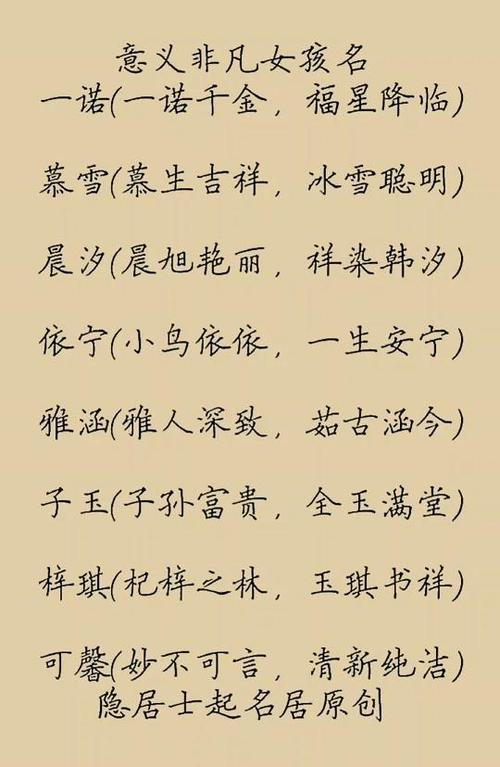 意义非凡女孩名
一诺(一诺千金，福星降临)
慕雪(慕生吉祥，冰雪聪明)
晨汐(晨旭艳丽，祥染韩汐)
依宁(小鸟依依，一生安宁)
雅涵(雅人深致，茹古涵今)
子玉(子孙富贵，全玉满堂)
梓琪(杞梓之林，玉琪书祥)
可馨(妙不可言，清新纯洁)
隐居士起名居原创